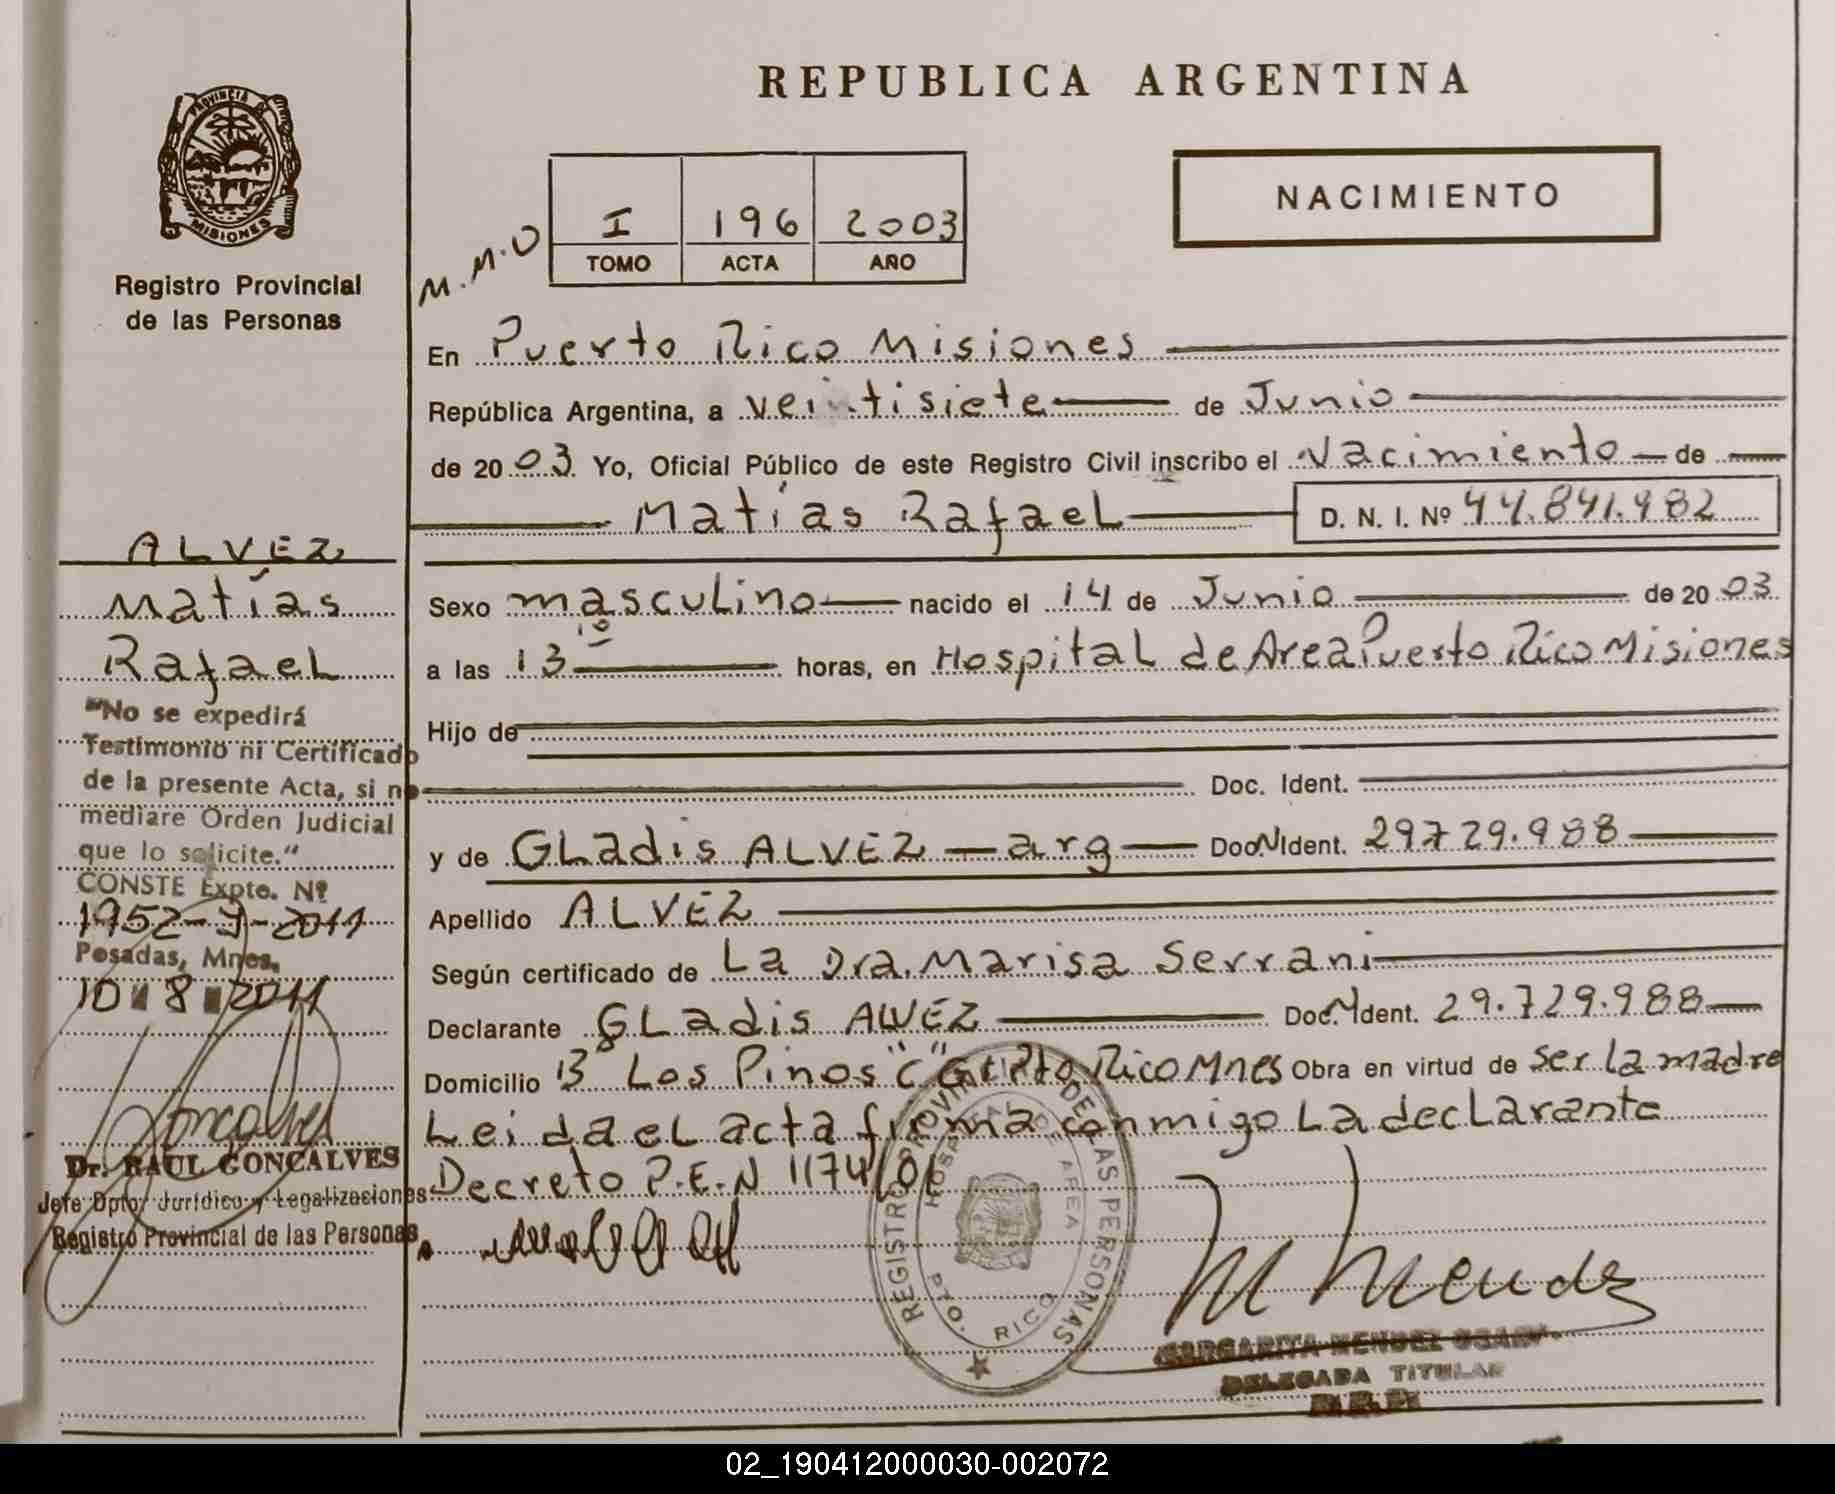 REPUBLICA ARGENTINA
PROVINCIA
MISIONES
Registro Provincial
de las Personas
NACIMIENTO
M.M.O
I 196 2003
TOMO ACTA AÑO
En Puerto Rico Misiones
República Argentina, a veintisiete de Junio
de 2003. Yo, Oficial Público de este Registro Civil inscribo el Nacimiento de
Matías Rafael D. N. I. Nº 44.841.982
Sexo masculino nacido el 14 de Junio de 2003
a las 13 10 horas, en Hospital de Area Puerto Rico Misiones
Hijo de
Doc. Ident.
y de Gladis ALVEZ - arg Doc.N Ident. 29729.988
Apellido ALVEZ
Según certificado de La Dra. Marisa Serrani
Declarante Gladis ALVEZ Doc.N Ident. 29.729.988
Domicilio Bº Los Pinos "C" Rico Mnes Obra en virtud de ser la madre
Leida el acta firma conmigo la declarante
Decreto P.E.N 1174/01
ALVEZ
Matías
Rafael
"No se expedirá
Testimonio ni Certificado
de la presente Acta, si no
mediare Orden Judicial
que lo solicite."
CONSTE Expte. Nº
1952-9-2011
Posadas, Mnes.
10 8 2011
Goncalves
Dr. RAUL GONCALVES
Jefe Dpto. Jurídico y Legalizaciones
Registro Provincial de las Personas
REGISTRO PROVINCIAL DE LAS PERSONAS
HOSPITAL DE AREA
PTO. RICO
M Mendez
MARGARITA MENDEZ
DELEGADA TITULAR
R.P.P.
02_190412000030-002072